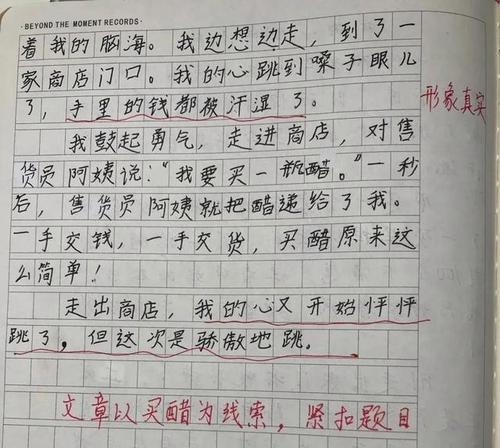 ·BEYOND THE MOMENT RECORDS·
着我的脑海。我边想边走，到了一
家商店门口。我的心跳到嗓子眼儿
了，手里的钱都被汗湿了。
形象真实
我鼓起勇气，走进商店，对售
货员阿姨说：“我要买一瓶醋。”一秒
后，售货员阿姨就把醋递给了我。
一手交钱，一手交货，买醋原来这
么简单！
走出商店，我的心又开始怦怦
跳了，但这次是骄傲地跳。
文章以买醋为线索，紧扣题目